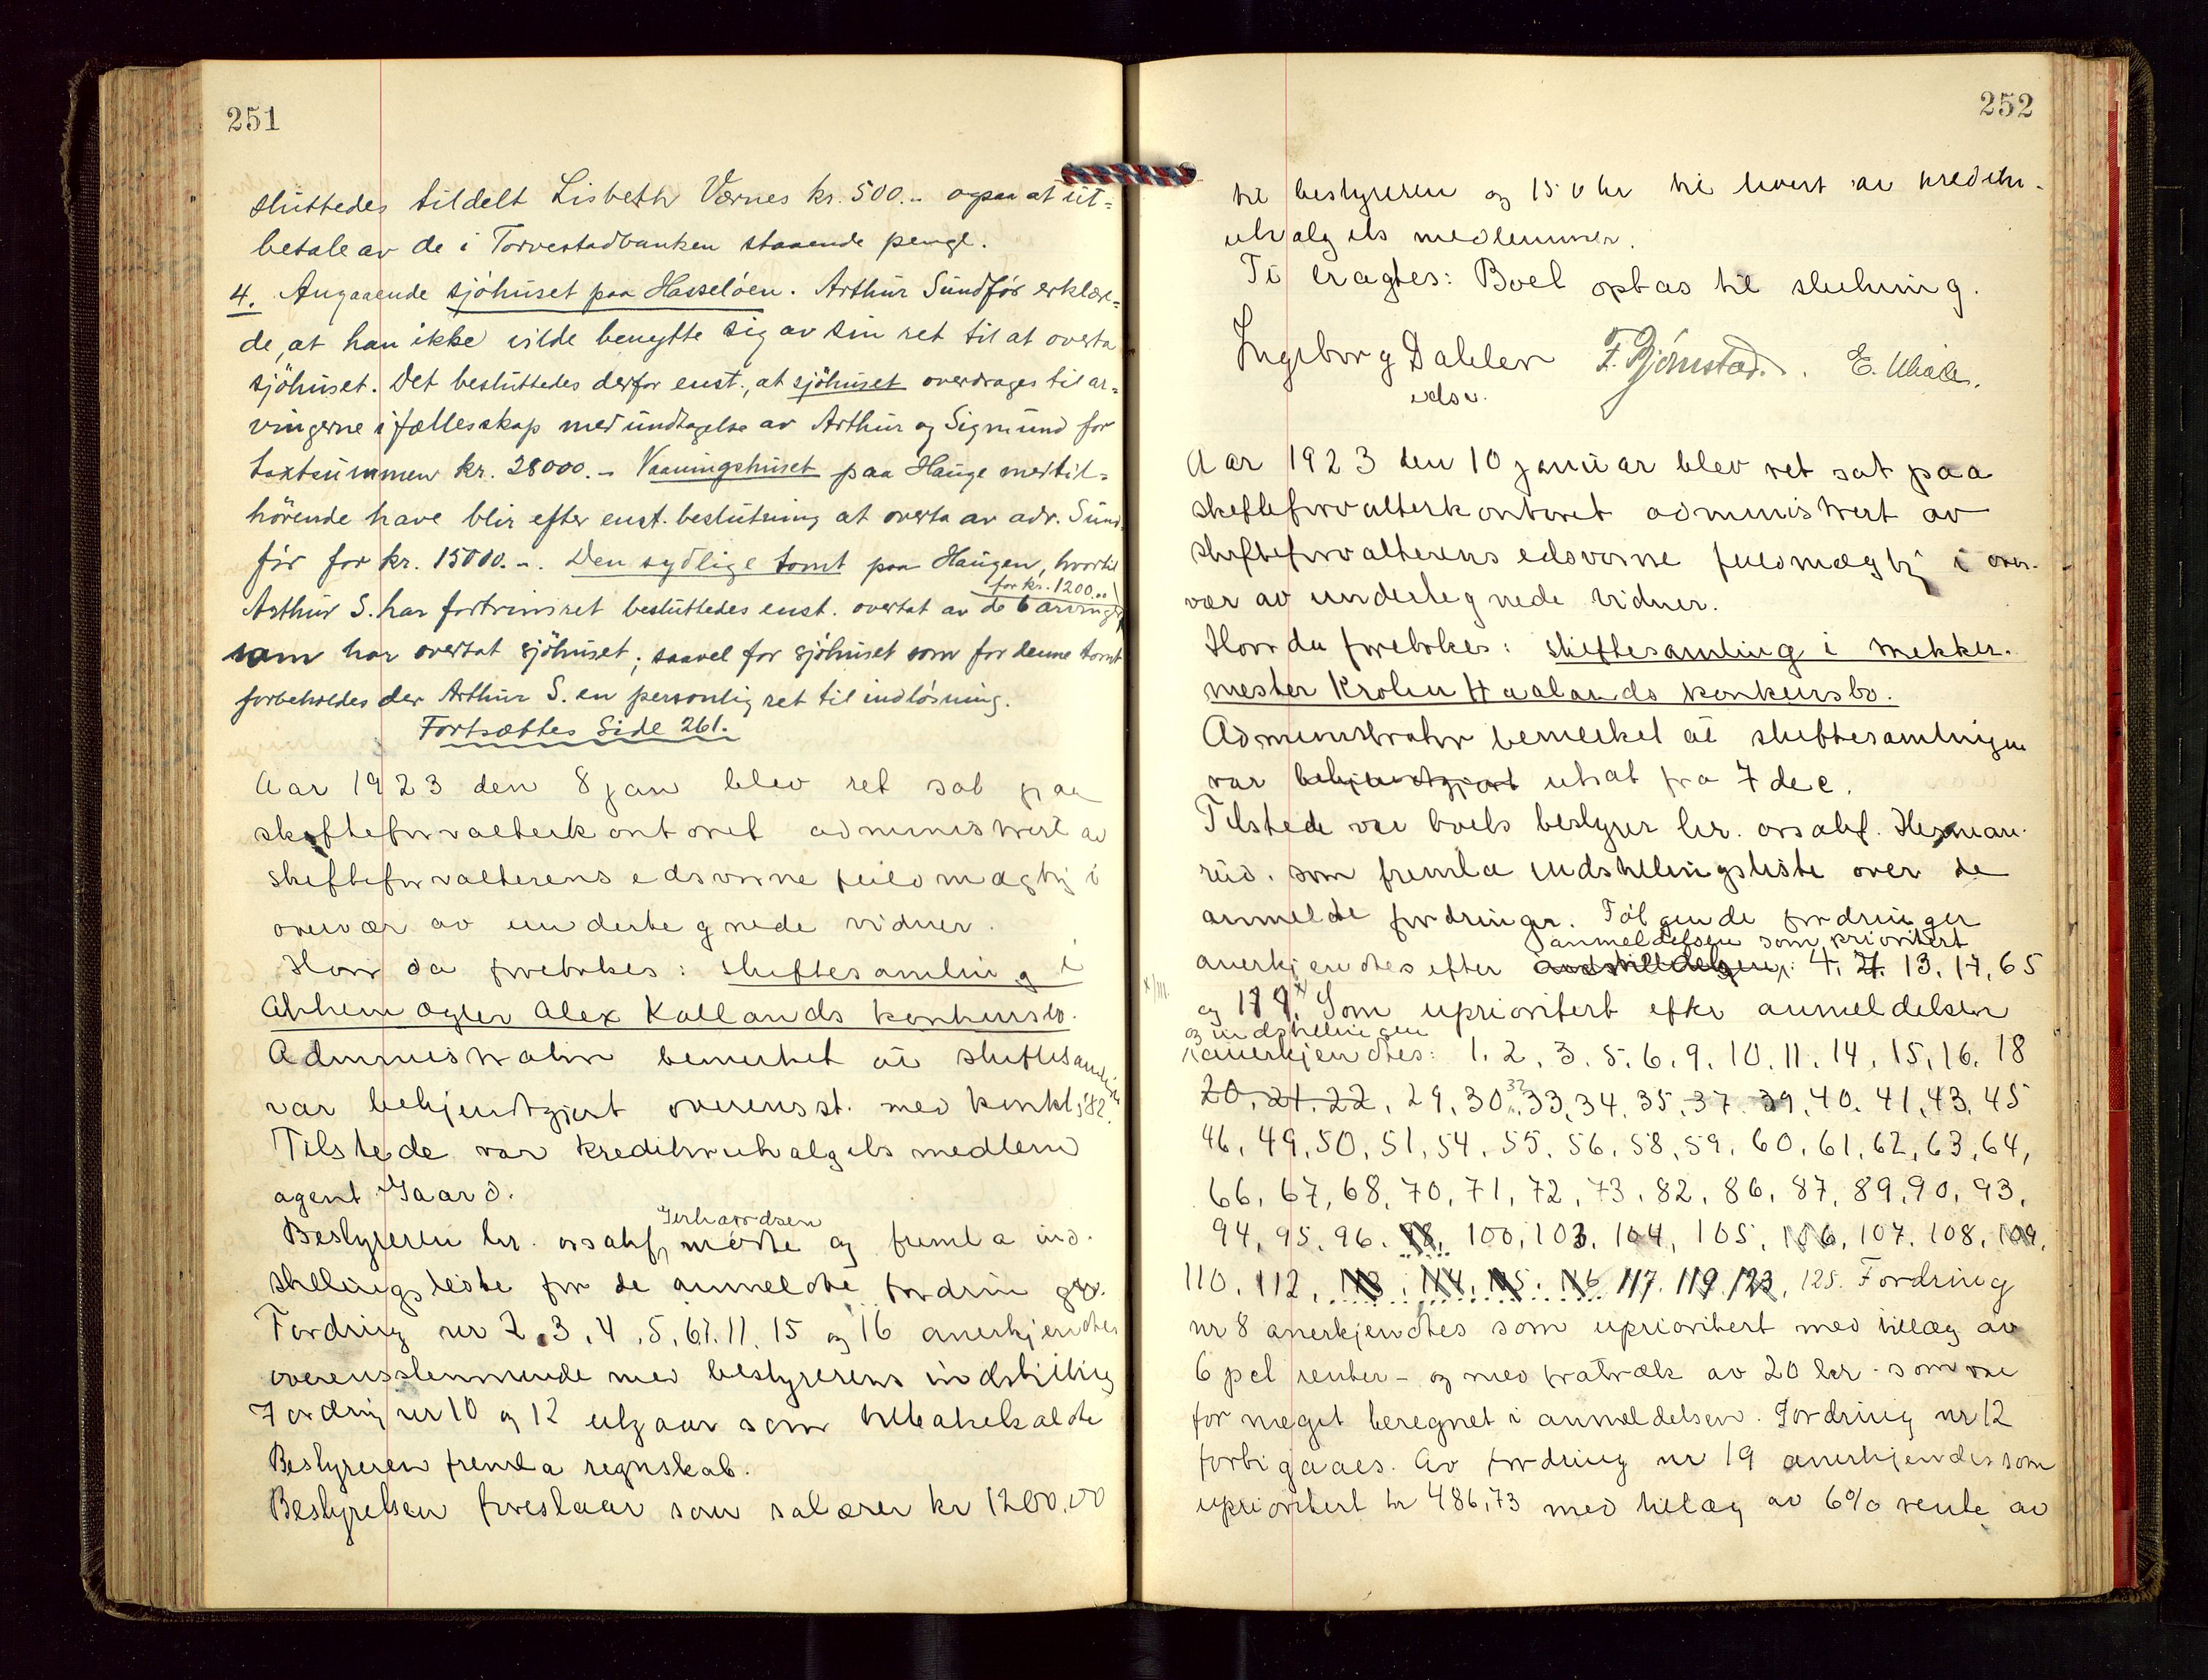 251
sluttedes tildelt Lisbeth Værnes kr. 500.- ogsaa at ut-
betale av de i Torvestadbanken staaende penge.
4. Angaaende sjöhuset paa Hasselöen. Arthur Sundför erklær-
de, at han ikke vilde benytte sig av sin ret til at overta
sjöhuset. Det besluttedes derfor enst., at sjöhuset overdrages til ar-
vingerne i fællesskap med undtagelse av Arthur og Sigmund for
taxtsummen kr. 28000.- Vaaningshuset paa Hauge med til-
hörende have blir efter enst. beslutning at overta av adv. Sund-
för for kr. 15000.-. Den sydlige tomt paa Haugen, hvortil
for kr. 1200..
Arthur S. har fortrinsret besluttedes enst. overtat av de 6 arvinger
som har overtat sjöhuset; saavel for sjöhuset som for denne tomt
forbeholdes der Arthur S. en personlig ret til indlösning.
Fortsættes Side 261.
Aar 1923 den 8 jan blev ret sat paa
skifteforvalterkontoret administrert av
skifteforvalterens edsvorne fuldmægtig i
overvær av undertegnede vidner.
Hvor da foretokes: skiftesamling i
Alex Kallands konkursbo.
Administrator bemerket at skiftesamlingen
var bekjendtgjort overensst. med konkl § 82.
Tilstede var kreditorutvalgets medlem
agent Gaard.
Gerhardsen
Bestyreren hr. orsakf. mødte og fremla ind-
stillingsliste for de anmeldte fordringer.
Fordring nr 2, 3, 4, 5, 6, 7, 11, 15 og 16 anerkjendtes
overensstemmende med bestyrerens indstilling
Fordring nr 10 og 12 utgaar som tilbakekaldte
Bestyreren fremla regnskab.
Bestyrelsen foreslaar som salærer kr 1200,00
252
til bestyreren og 150 kr til hvert av kreditor-
utvalgets medlemmer.
Ti eragtes: Boet optas til slutning.
Ingeborg Dahler F. Bjørnstad.
edsv.
Aar 1923 den 10 januar blev ret sat paa
skifteforvalterkontoret administrert av
skifteforvalterens edsvorne fuldmægtig i over-
vær av undertegnede vidner.
Hvor da foretokes: skiftesamling i mekker-
mester Krohn Haalands konkursbo.
Administrator bemerket at skiftesamlingen
var bekjendtgjort utsat fra 7 dec.
Tilstede var boets bestyrer hr. orsakf. Herman-
rud. som fremla indstillingsliste over de
anmeldte fordringer. Følgende fordringer
anmeldelsen som prioritert
anerkjendtes efter indstillingen: 4, 7, 13, 17, 65
og 119. Som uprioritert efter anmeldelsen
og indstillingen
anerkjendtes: 1, 2, 3, 5, 6, 9, 10, 11, 14, 15, 16, 18
20, 21, 22, 29, 30, 32, 33, 34, 35, 37, 39, 40, 41, 43, 45
46, 49, 50, 51, 54, 55, 56, 58, 59, 60, 61, 62, 63, 64,
66, 67, 68, 70, 71, 72, 73, 82, 86, 87, 89, 90, 93,
94, 95, 96, 98, 100, 103, 104, 105, 106, 107, 108, 109,
110, 112, 113, 114, 115, 116, 117, 119, 123, 125. Fordring
nr 8 anerkjendtes som uprioritert med tillæg av
6 pct renter - og med fratræk av 20 kr - som var
for meget beregnet i anmeldelsen. Fordring nr 12
forbigaaes. Av fordring nr 19 anerkjendes som
uprioritert kr 486,73 med tillæg av 6% rente av